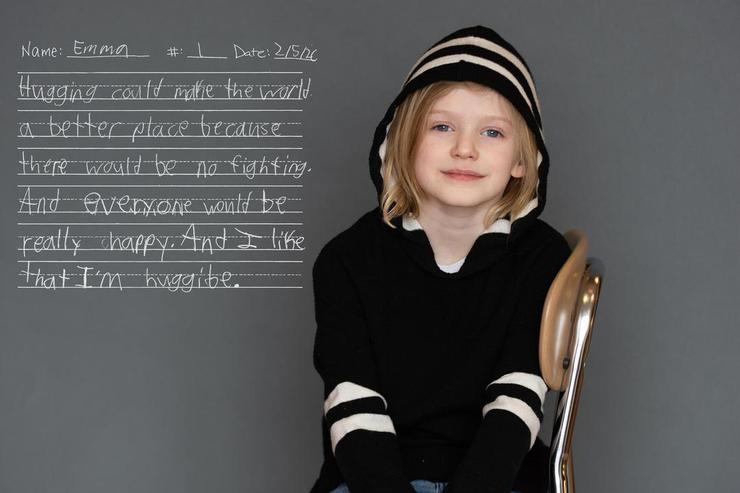 Name: Emma #: 1 Date:
Hugging could make the world
a better place because
there would be no fighting.
And everyone would be
really happy. And I like
that I'm huggibe.